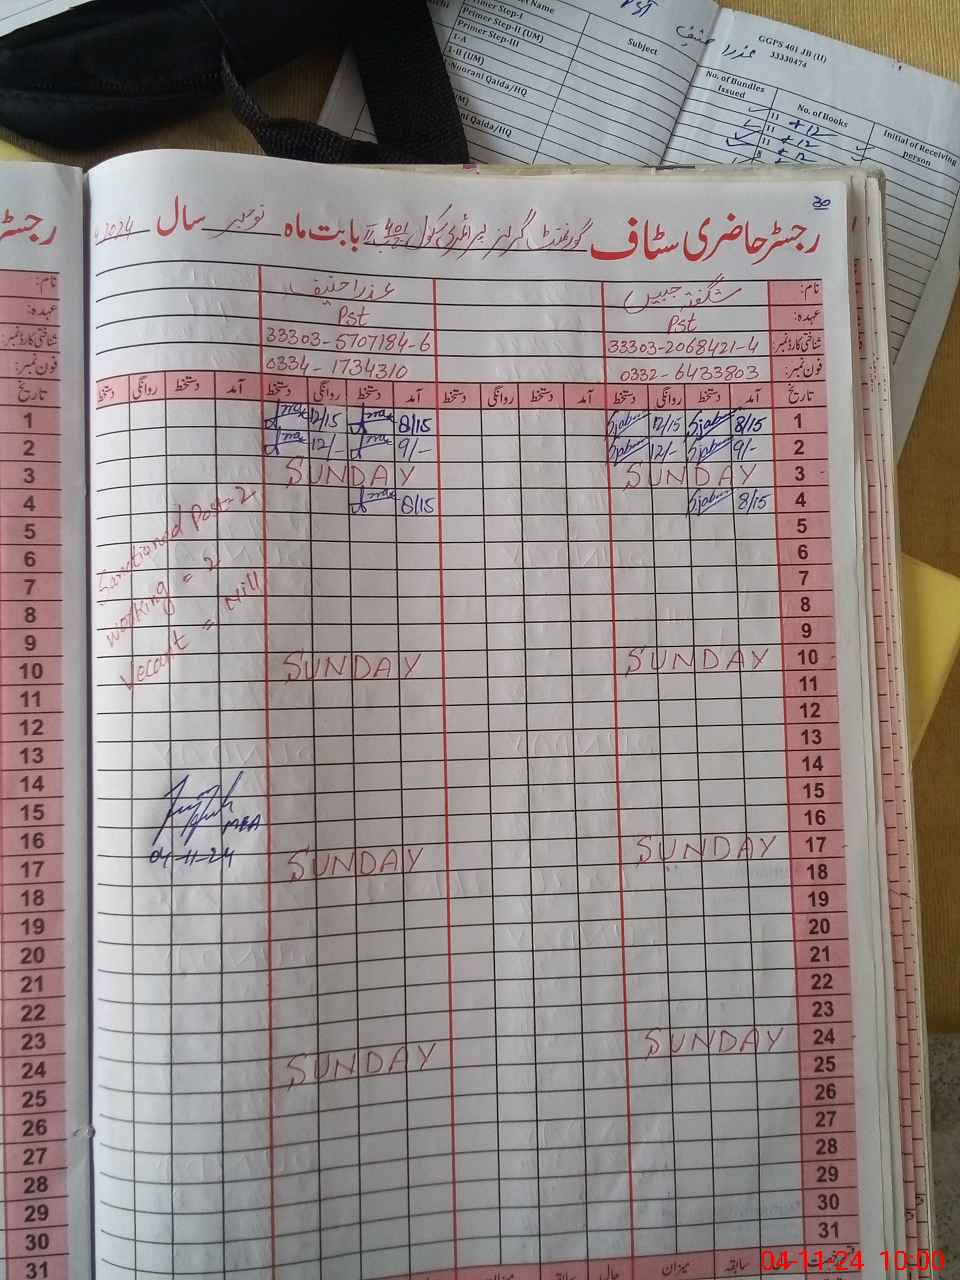 Set Name
Primer Step-I
Primer Step-II (UM)
Primer Step-III
1-A
1-B (UM)
Noorani Qaida/HQ
Subject
عذرا حنیف
GGPS 401 JB (II)
33330474
No. of Bundles Issued
No. of Books
Initial of Receiving person
11 + 12
11 + 12
11 + 12
30
رجسٹر حاضری سٹاف گورنمنٹ گرلز پرائمری سکول 401 بابت ماہ نومبر سال 2024
نام: شگفتہ جبیں عذرا حنیف
عہدہ: Pst Pst
شناختی کارڈ نمبر: 33303-2068421-4 33303-5707184-6
فون نمبر: 0332-6433803 0334-1734310
تاریخ آمد دستخط روانگی دستخط آمد دستخط روانگی دستخط آمد دستخط روانگی دستخط آمد دستخط روانگی دستخط
1 8/15 Sjabin 12/15 Sjabin 8/15 12/15
2 9/- Sjabin 12/- Sjabin 9/- 12/-
3 SUNDAY SUNDAY
4 8/15 Sjabin 8/15
5
6
7
8
9
10 SUNDAY SUNDAY
11
12
13
14
15
16
17 SUNDAY SUNDAY
18
19
20
21
22
23
24 SUNDAY SUNDAY
25
26
27
28
29
30
31
Sanctioned Post = 2
Working = 2
Vecant = Nill
MEA
04-11-24
میزان سابقہ حال میزان سابقہ
رجسٹر
1
2
3
4
5
6
7
8
9
10
11
12
13
14
15
16
17
18
19
20
21
22
23
24
25
26
27
28
29
30
31
04-11-24 10:00